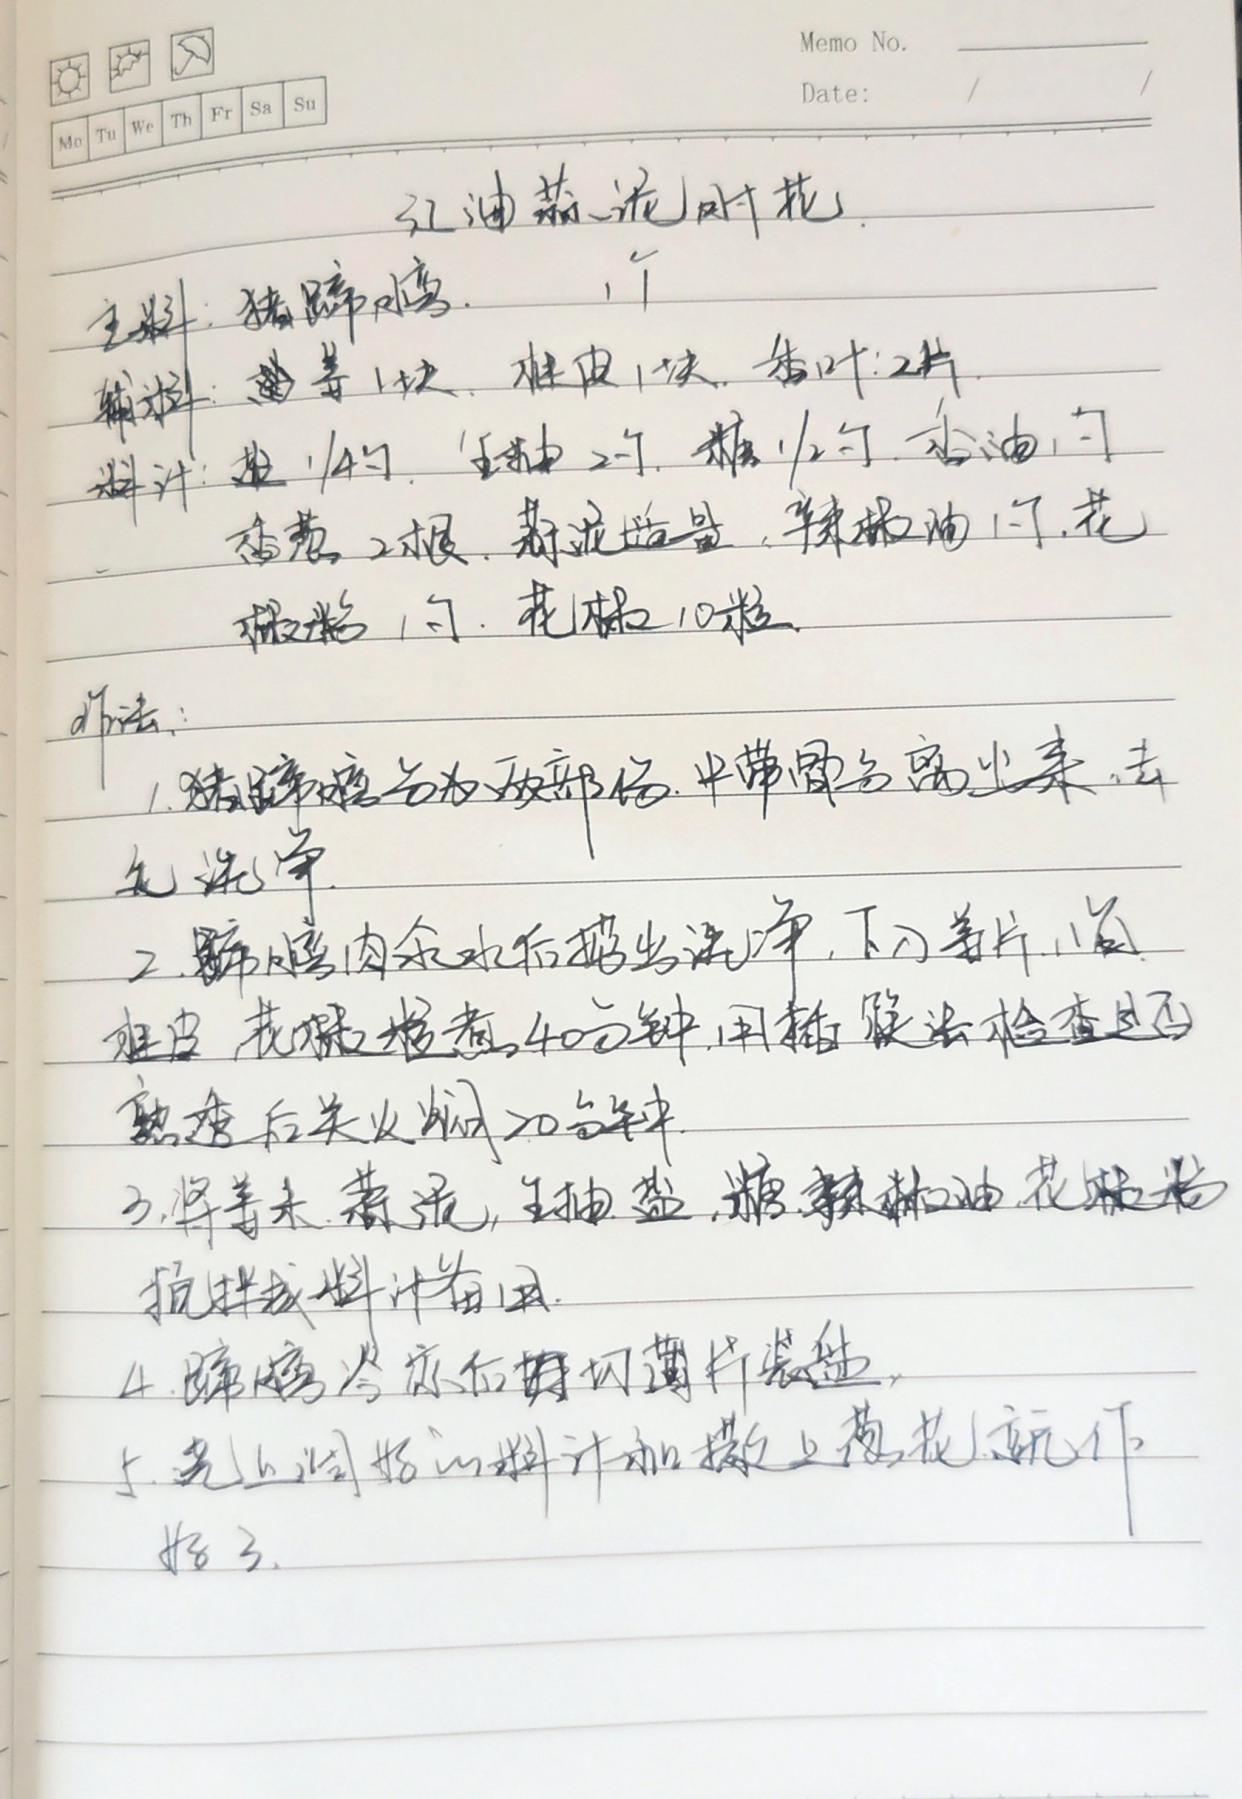 Memo No.
Date: / /
Mo Tu We Th Fr Sa Su
红油蒜泥肘花.
主料: 猪蹄膀. 1个
辅料: 姜1块. 桂皮1块. 香叶:2片.
料汁: 盐1/4勺. 生抽2勺. 糖1/2勺. 香油1勺
香葱2根. 蒜泥适量, 辣椒油1勺, 花
椒粉1勺. 花椒10粒.
作法:
1. 猪蹄膀分为两部份. 中带骨分离出来, 去
毛洗净.
2. 蹄膀肉汆水后捞出洗净, 下入姜片,
桂皮 花椒 煮40分钟, 用插 法检查是否
熟透后关火焖20分钟.
3. 将姜末. 蒜泥, 生抽. 盐. 糖. 辣椒油. 花椒粉
搅拌成料汁备用.
4. 蹄膀冷凉后切薄片装盘,
5. 浇上调好的料汁和撒上葱花就作
好了.